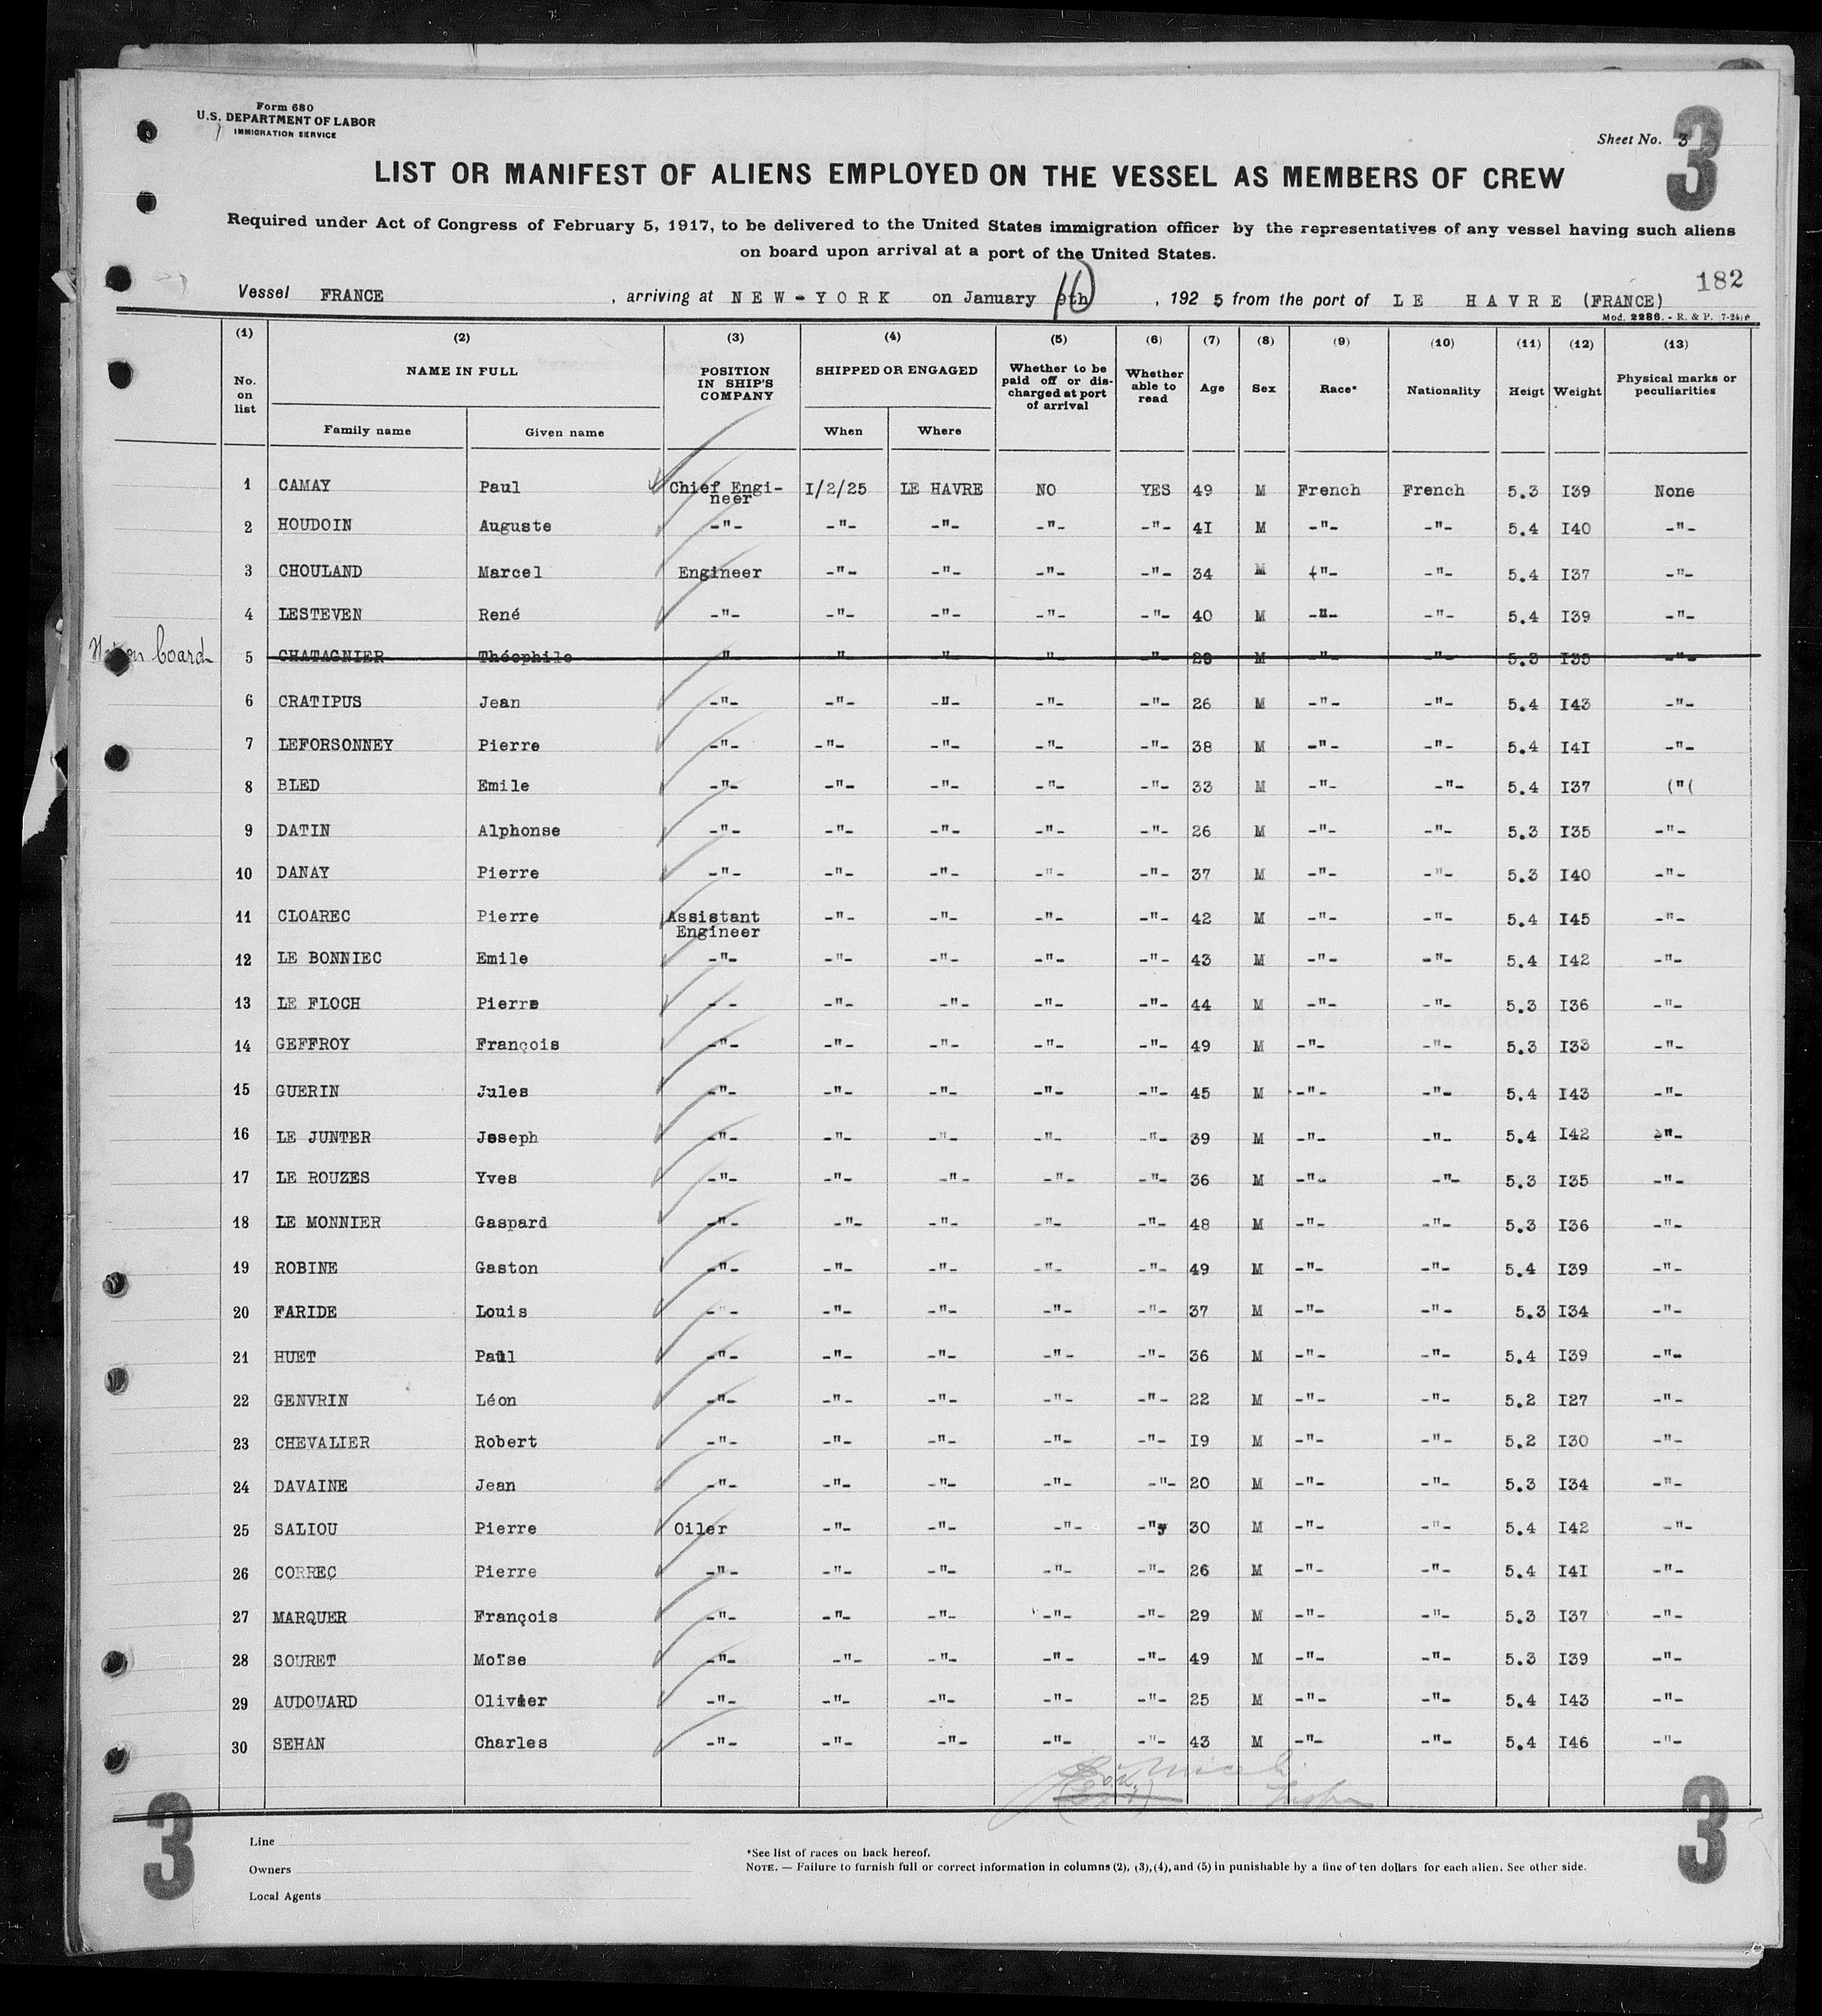 Form 680
U.S. DEPARTMENT OF LABOR
IMMIGRATION SERVICE
Sheet No. 3
3
LIST OR MANIFEST OF ALIENS EMPLOYED ON THE VESSEL AS MEMBERS OF CREW
Required under Act of Congress of February 5, 1917, to be delivered to the United States immigration officer by the representatives of any vessel having such aliens
on board upon arrival at a port of the United States.
182
Vessel FRANCE , arriving at NEW-YORK on January 9th 10 , 192 5 from the port of LE HAVRE (FRANCE)
Mod. 2286. - R. & P. (7-24)
(1) (2) (3) (4) (5) (6) (7) (8) (9) (10) (11) (12) (13)
No. on list NAME IN FULL POSITION IN SHIP'S COMPANY SHIPPED OR ENGAGED Whether to be paid off or discharged at port of arrival Whether able to read Age Sex Race* Nationality Heigt Weight Physical marks or peculiarities
Family name Given name When Where
1 CAMAY Paul Chief Engi-neer I/2/25 LE HAVRE NO YES 49 M French French 5.3 I39 None
2 HOUDOIN Auguste -"- -"- -"- -"- -"- 4I M -"- -"- 5.4 I40 -"-
3 CHOULAND Marcel Engineer -"- -"- -"- -"- 34 M ("- -"- 5.4 I37 -"-
4 LESTEVEN René -"- -"- -"- -"- -"- 40 M -"- -"- 5.4 I39 -"-
Not on board 5 CHATAGNIER Théophile " " " " " 28 M " " 5.3 I35 -"-
6 CRATIPUS Jean -"- -"- -"- -"- -"- 26 M -"- -"- 5.4 I43 -"-
7 LEFORSONNEY Pierre -"- -"- -"- -"- -"- 38 M -"- -"- 5.4 I4I -"-
8 BLED Emile -"- -"- -"- -"- -"- 33 M -"- -"- 5.4 I37 ("(
9 DATIN Alphonse -"- -"- -"- -"- -"- 26 M -"- -"- 5.3 I35 -"-
10 DANAY Pierre -"- -"- -"- -"- -"- 37 M -"- -"- 5.3 I40 -"-
11 CLOAREC Pierre Assistant Engineer -"- -"- -"- -"- 42 M -"- -"- 5.4 I45 -"-
12 LE BONNIEC Emile -"- -"- -"- -"- -"- 43 M -"- -"- 5.4 I42 -"-
13 LE FLOCH Pierre - - -"- -"- -"- -"- 44 M -"- -"- 5.3 I36 -"-
14 GEFFROY François -"- -"- -"- -"- -"- 49 M -"- -"- 5.3 I33 -"-
15 GUERIN Jules -"- -"- -"- -"- -"- 45 M -"- -"- 5.4 I43 -"-
16 LE JUNTER Joseph -"- -"- -"- -"- -"- 39 M -"- -"- 5.4 I42 -"-
17 LE ROUZES Yves -"- -"- -"- -"- -"- 36 M -"- -"- 5.3 I35 -"-
18 LE MONNIER Gaspard -"- -"- -"- -"- -"- 48 M -"- -"- 5.3 I36 -"-
19 ROBINE Gaston -"- -"- -"- -"- -"- 49 M -"- -"- 5.4 I39 -"-
20 FARIDE Louis -"- -"- -"- -"- -"- 37 M -"- -"- 5.3 I34 -"-
21 HUET Paul -"- -"- -"- -"- -"- 36 M -"- -"- 5.4 I39 -"-
22 GENVRIN Léon -"- -"- -"- -"- -"- 22 M -"- -"- 5.2 I27 -"-
23 CHEVALIER Robert -"- -"- -"- -"- -"- I9 M -"- -"- 5.2 I30 -"-
24 DAVAINE Jean -"- -"- -"- -"- -"- 20 M -"- -"- 5.3 I34 -"-
25 SALIOU Pierre Oiler -"- -"- -"- -"y 30 M -"- -"- 5.4 I42 -"-
26 CORREC Pierre -"- -"- -"- -"- -"- 26 M -"- -"- 5.4 I4I -"-
27 MARQUER François -"- -"- -"- -"- -"- 29 M -"- -"- 5.3 I37 -"-
28 SOURET Moïse -"- -"- -"- -"- -"- 49 M -"- -"- 5.3 I39 -"-
29 AUDOUARD Olivier -"- -"- -"- -"- -"- 25 M -"- -"- 5.4 I43 -"-
30 SEHAN Charles -"- -"- -"- -"- -"- 43 M -"- -"- 5.4 I46 -"-
3 3
Line
Owners
Local Agents
*See list of races on back hereof.
NOTE. — Failure to furnish full or correct information in columns (2), (3), (4), and (5) in punishable by a fine of ten dollars for each alien. See other side.